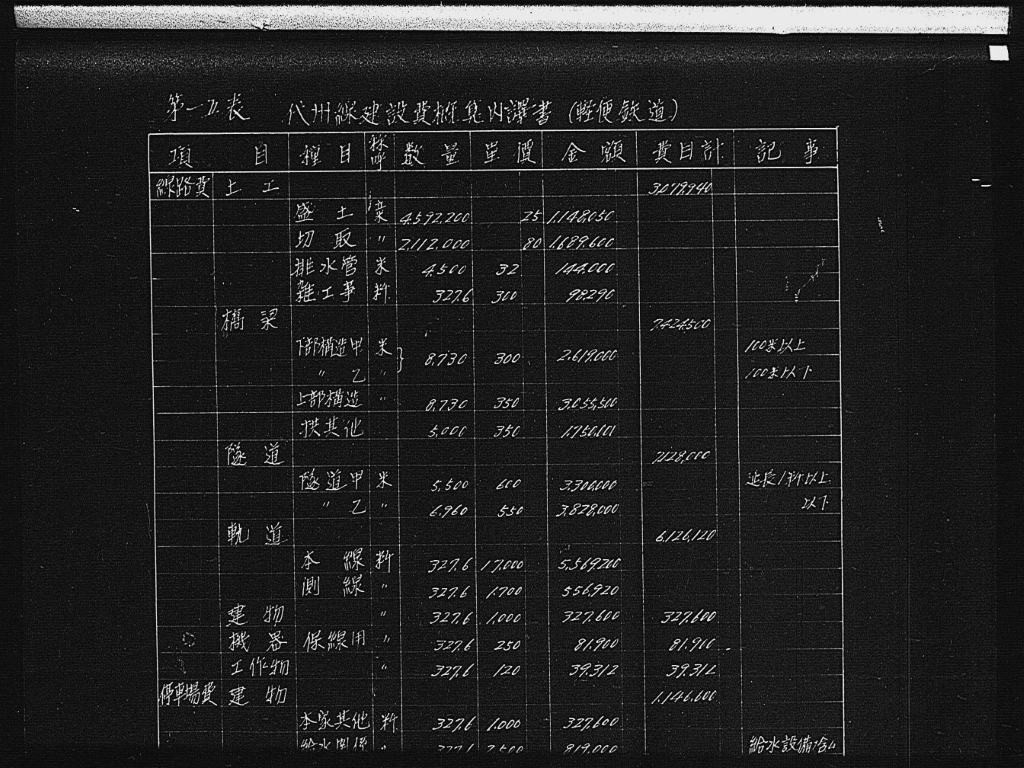 代州線建設費概算内譯書 (輕便鉄道)
項目 種目 稱呼 数量 單價 金額 費目計 記事
線路費 土工 3,079,940
盛土 立米 4,592,200 25 1,148,050
切取 〃 2,112,000 80 1,689,600
排水管 米 4,500 32 144,000
雑工事 粁 327.6 300 98,290
橋梁 7,424,500
下部構造甲 米 8,730 300 2,619,000 100米以上
〃 乙 〃 100米以下
上部構造 〃 8,730 350 3,055,500
拱其他 5,000 350
隧道 7,128,000
隧道甲 米 5,500 600 3,300,000 延長1粁以上
〃 乙 〃 6,960 550 3,828,000 以下
軌道 6,126,120
本線 粁 327.6 17,000 5,569,200
側線 〃 327.6 1,700 556,920
建物 〃 327.6 1,000 327,600 327,600
機器 保線用 〃 327.6 250 81,900 81,900
工作物 〃 327.6 120 39,312 39,312
停車場費 建物 1,146,600
本家其他 粁 327.6 1,000 327,600
給水関係 〃 2,500 819,000 給水設備含ム